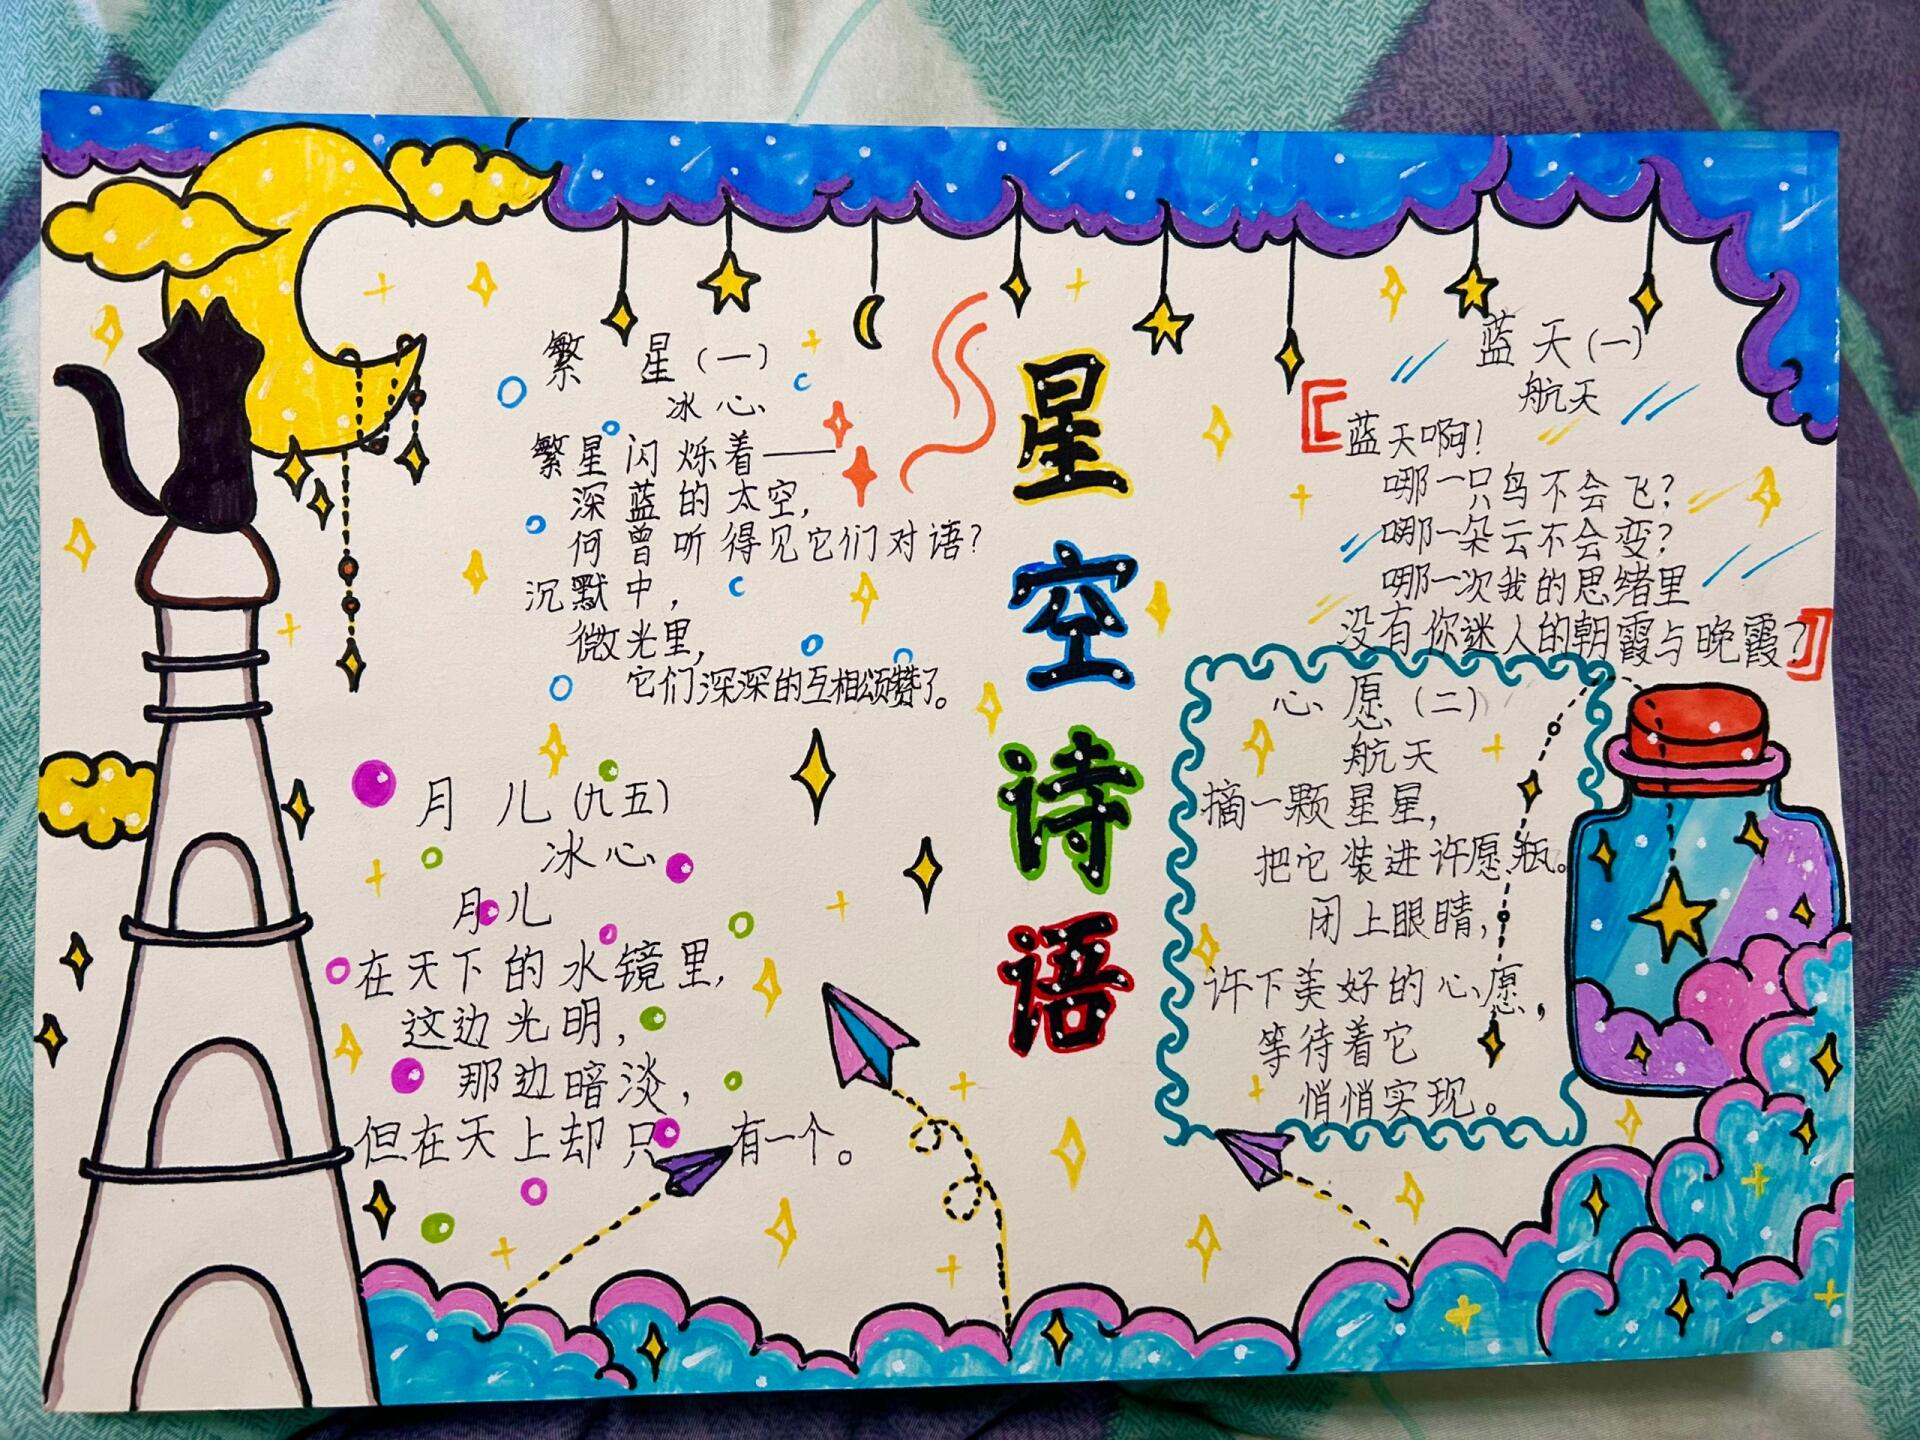 繁 星（一）
冰心
繁星闪烁着——
深蓝的太空，
何曾听得见它们对语？
沉默中，
微光里，
它们深深的互相颂赞了。
月 儿（九五）
冰心
月儿
在天下的水镜里，
这边光明，
那边暗淡，
但在天上却只有一个。
星空诗语
蓝天（一）
航天
蓝天啊！
哪一只鸟不会飞？
哪一朵云不会变？
哪一次我的思绪里
没有你迷人的朝霞与晚霞？
心愿（二）
航天
摘一颗星星，
把它装进许愿瓶。
闭上眼睛，
许下美好的心愿，
等待着它
悄悄实现。